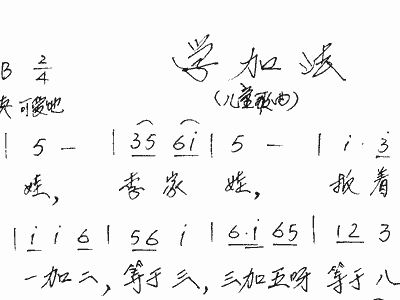 学加法
B 2/4
(儿童歌曲)
快 可爱地
| 5 - | 35 6i | 5 - | i · 3
娃, 李家 娃, 扳着
| i i 6 | 56 i | 6·i 65 | 12 3
一加二, 等于三, 三加五呀 等于八